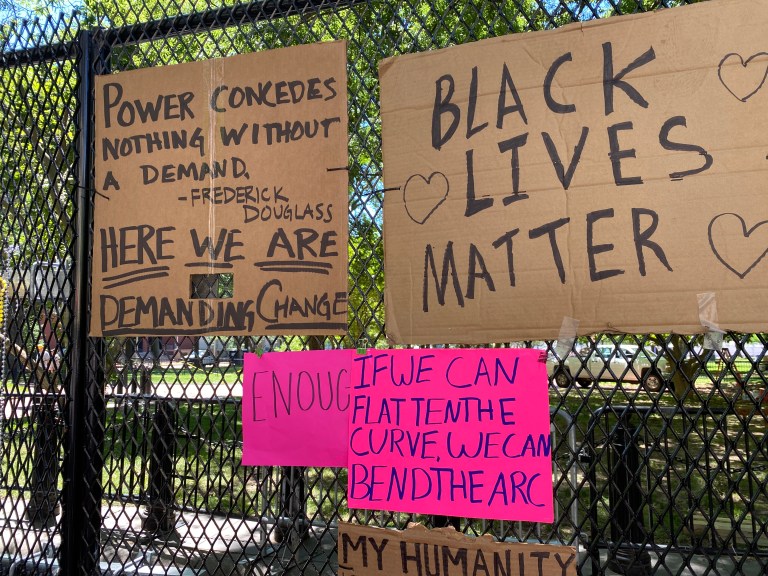 POWER CONCEDES
NOTHING WITHOUT
A DEMAND.
-FREDERICK
DOUGLASS
HERE WE ARE
DEMANDING CHANGE
BLACK
LIVES
MATTER
ENOUG
IF WE CAN
FLATTEN THE
CURVE, WE CAN
BEND THE ARC
MY HUMANITY